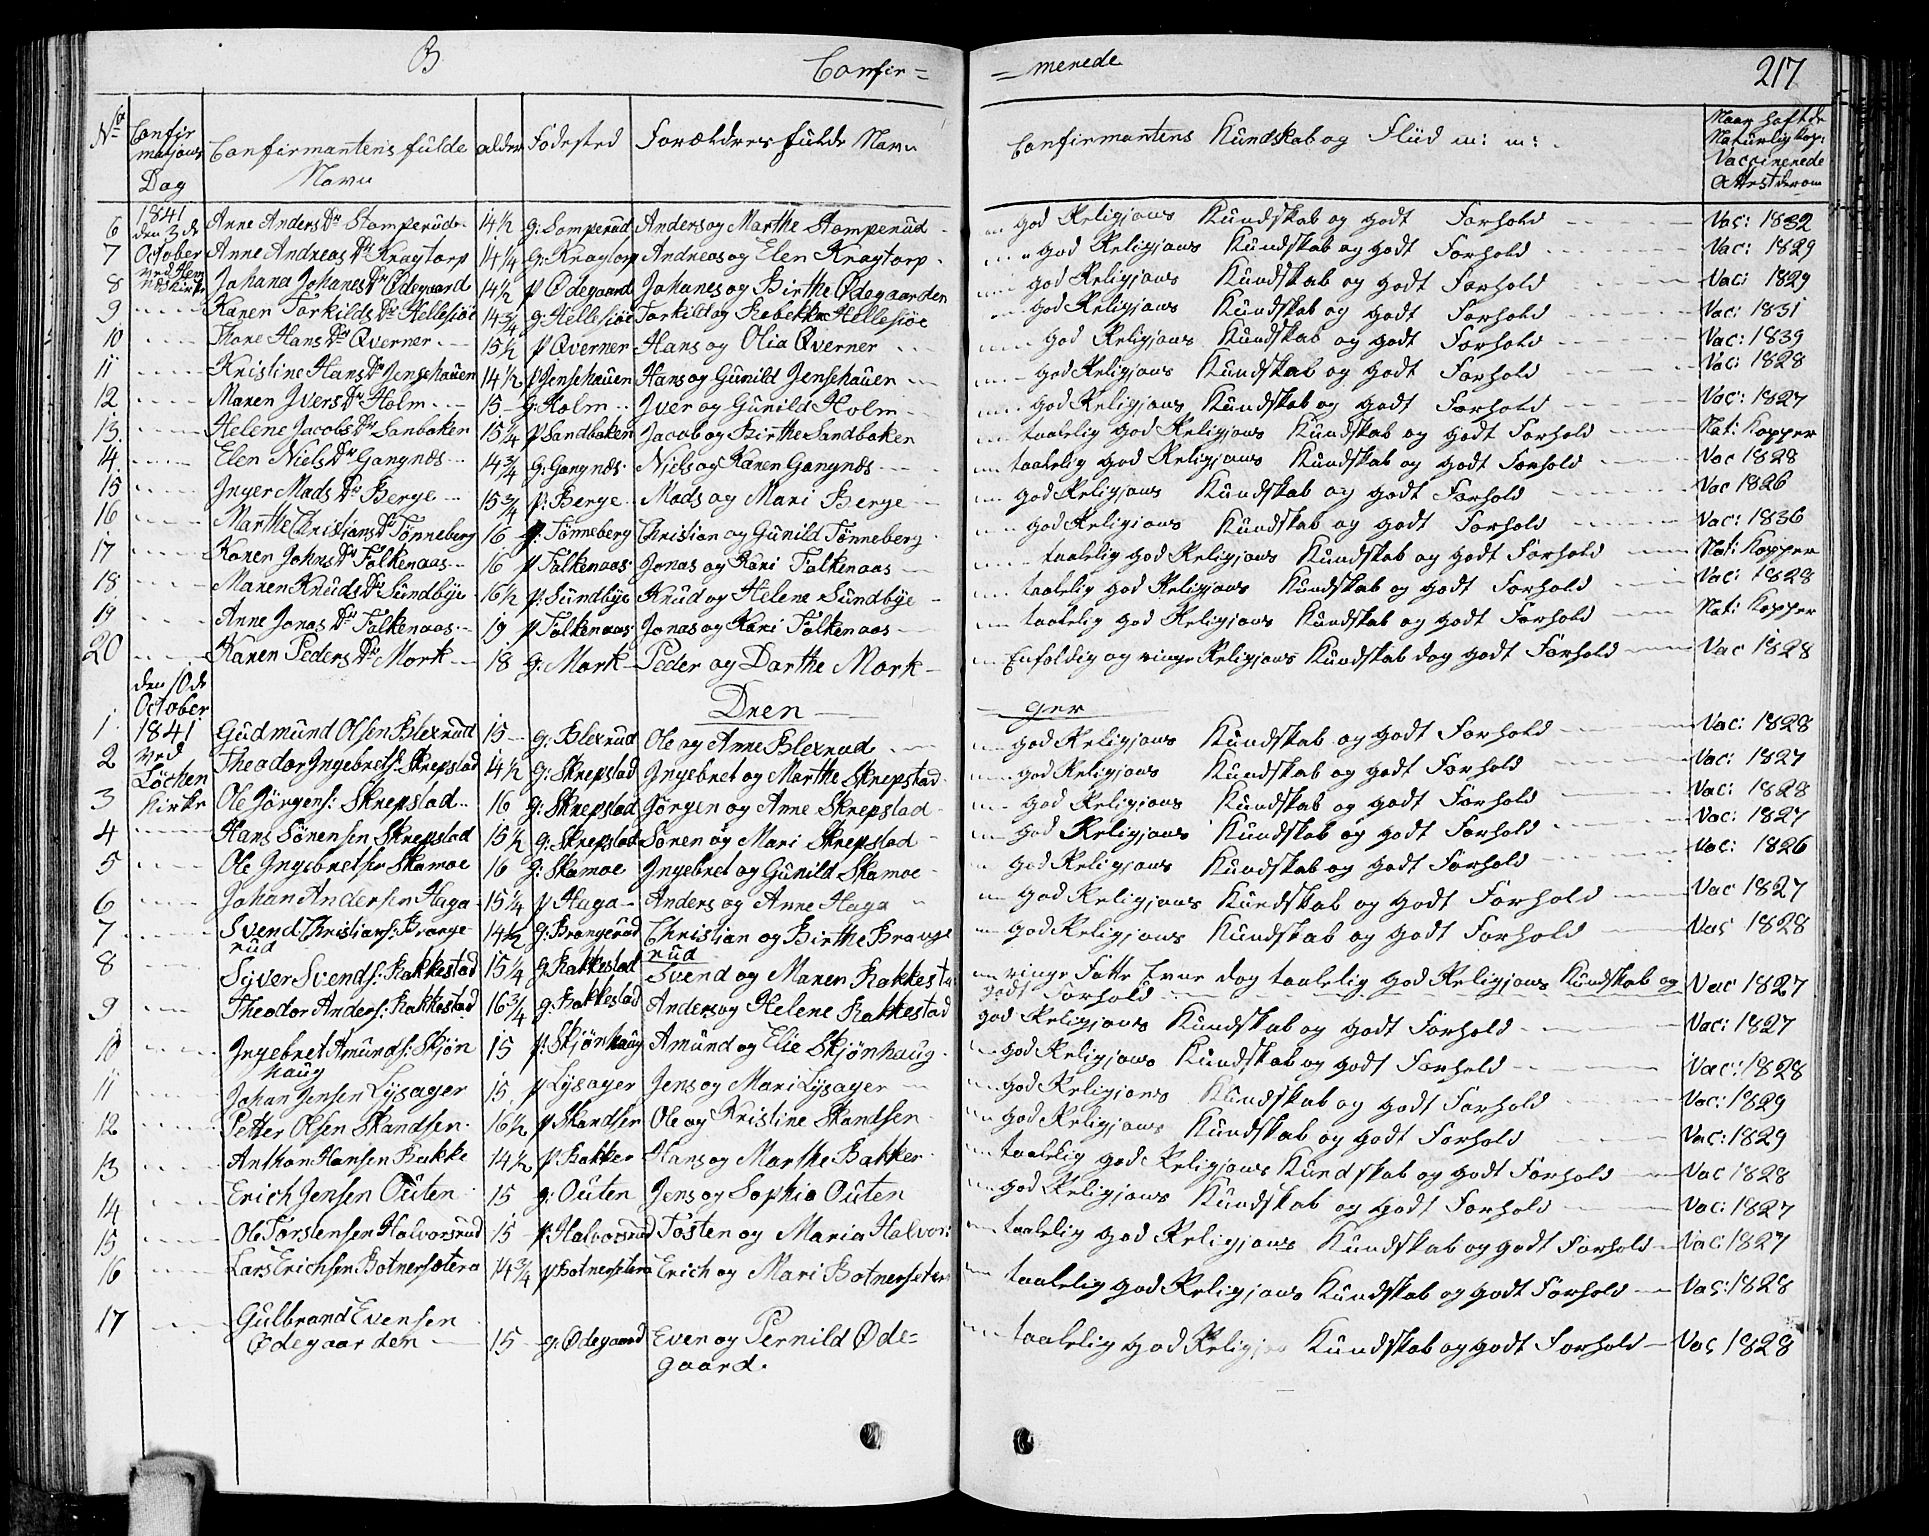 B
Confir =
= merede
217
No Confirmasjons Dag Confirmantens fulde Navn alder Födested Forældres fulde Navn Confirmantens Kundskab og Fliid m: m: Naar hafte Naturlig Kop: Vaccinerede Attest derom
6 1841 den 3de Anne Anders Dr Stomperud 14½ g: Somperud Anders og Marthe Stomperud god Religjons Kundskab og godt Forhold Vac: 1832
7 October Anne Andreas Dr Kragtorp 14¼ g: Kragtorp Andreas og Elen Kragtorp god Religjons Kundskab og godt Forhold Vac: 1829
8 ved Hemnæs Kirke Johana Johanes Dr Ödegaard 14½ p Ödegaard Johanes og Birthe Ödegaarden god Religjons Kundskab og godt Forhold Vac: 1829
9 Karen Torkilds Dr Hellesiöe 14¾ g: Hellesiöe Torkild og Rebekka Hellesiöe god Religjons Kundskab og godt Forhold Vac: 1831
10 Thone Hans Dr Qverner 15½ p Qverner Hans og Olia Qverner god Religjons Kundskab og godt Forhold Vac: 1839
11 Kristine Hans Dr Jensehauen 14½ p Jensehauen Hans og Gunild Jensehauen god Religjons Kundskab og godt Forhold Vac: 1828
12 Maren Ivers Dr Holm 15 g: Holm Iver og Gunild Holm god Religjons Kundskab og godt Forhold Vac: 1827
13 Helene Jacobs Dr Sanbaken 15¼ p Sandbaken Jacob og Birthe Sandbaken taalelig god Religjons Kundskab og godt Forhold Nat: Kopper
14 Elen Niels Dr Gangnæs 14¾ g: Gangnæs Niels og Karen Gangnæs taalelig god Religjons Kundskab og godt Forhold Vac 1828
15 Inger Mads Dr Berge 15¾ p: Berge Mads og Mari Berge god Religjons Kundskab og godt Forhold Vac 1826
16 Marthe Christians Dr Tönneberg 16 p: Tönneberg Christian og Gunild Tönneberg god Religjons Kundskab og godt Forhold Vac: 1836
17 Karen Johns Dr Falkenaas 16 p Falkenaas Jonas og Kari Falkenaas taalelig god Religjons Kundskab og godt Forhold Nat: Kopper
18 Maren Knuds Dr Sundbye 16½ p: Sundbye Knud og Helene Sundbye taalelig god Religjons Kundskab og godt Forhold Vac: 1828
19 Anne Jonas Dr Falkenaas 19 p Falkenaas Jonas og Kari Falkenaas taalelig god Religjons Kundskab og godt Forhold Nat: Kopper
20 Karen Peders Dr Mork 18 g: Mork Peder og Darthe Mork Enfoldig og ringe Religjons Kundskab dog godt Forhold Vac 1828
den 10de October Dren ger
1 1841 Gudmund Olsen Blexrud 15 g: Blexrud Ole og Anne Blexrud god Religjons Kundskab og godt Forhold Vac: 1828
2 ved Theodor Ingebrets: Skrepstad 14½ g: Skrepstad Ingebret og Marthe Skrepstad god Religjons Kundskab og godt Forhold Vac: 1827
3 Löchen Kirke Ole Jörgens: Skrepstad 16 g: Skrepstad Jörgen og Anne Skrepstad god Religjons Kundskab og godt Forhold Vac: 1828
4 Hans Sörensen Skrepstad 15½ g: Skrepstad Sören og Mari Skrepstad god Religjons Kundskab og godt Forhold Vac: 1827
5 Ole Ingebretsen Skamoe 16 g: Skamoe Ingebret og Gunild Skamoe god Religjons Kundskab og godt Forhold Vac: 1826
6 Johan Andersen Haga 15¼ p Haga Anders og Anne Haga god Religjons Kundskab og godt Forhold Vac 1827
7 Svend Christians: Brangerud 14½ g: Brangerud Christian og Birthe Brangerud god Religjons Kundskab og godt Forhold Vac 1828
8 Syver Svends: Rakkestad 15¼ g Rakkestad Svend og Maren Rakkesta ringe Fatte Evne dog taalelig god Religjons Kundskab og godt Forhold Vac 1827
9 Theodor Anders: Rakkestad 16¾ g: Rakkestad Anders og Helene Rakkestad god Religjons Kundskab og godt Forhold Vac: 1827
10 Ingebret Amunds: Skjönhaug 15 p: Skjönhaug Amund og Elie Skjönhaug god Religjons Kundskab og godt Forhold Vac: 1828
11 Johan Jensen Lysager 15 p Lysager Jens og Mari Lysager god Religjons Kundskab og godt Forhold Vac: 1829
12 Petter Olsen Skandsen 16½ p Skandsen Ole og Kristine Skandsen god Religjons Kundskab og godt Forhold Vac: 1829
13 Anthon Hansen Bakke 14½ p: Bakker Hans og Marthe Bakker taalelig god Religjons Kundskab og godt Forhold Vac 1828
14 Erich Jensen Outen 15 g: Outen Jens og Sophia Outen god Religjons Kundskab og godt Forhold Vac: 1827
15 Ole Torstensen Halvorsrud 15 p: Halvorsrud Tosten og Maria Halvor: taalelig god Religjons Kundskab og godt Forhold Vac: 1827
16 Lars Erichsen Botnersætera 14¾ p Botnersetera Erich og Mari Botnerseter taalelig god Religjons Kundskab og godt Forhold Vac: 1828
17 Gulbrand Evensen
Ödegaarden 15 g: Ödegaard Even og Pernild Öde= taalelig god Religjons Kundskab og godt Forhold Vac 1828
gaard.